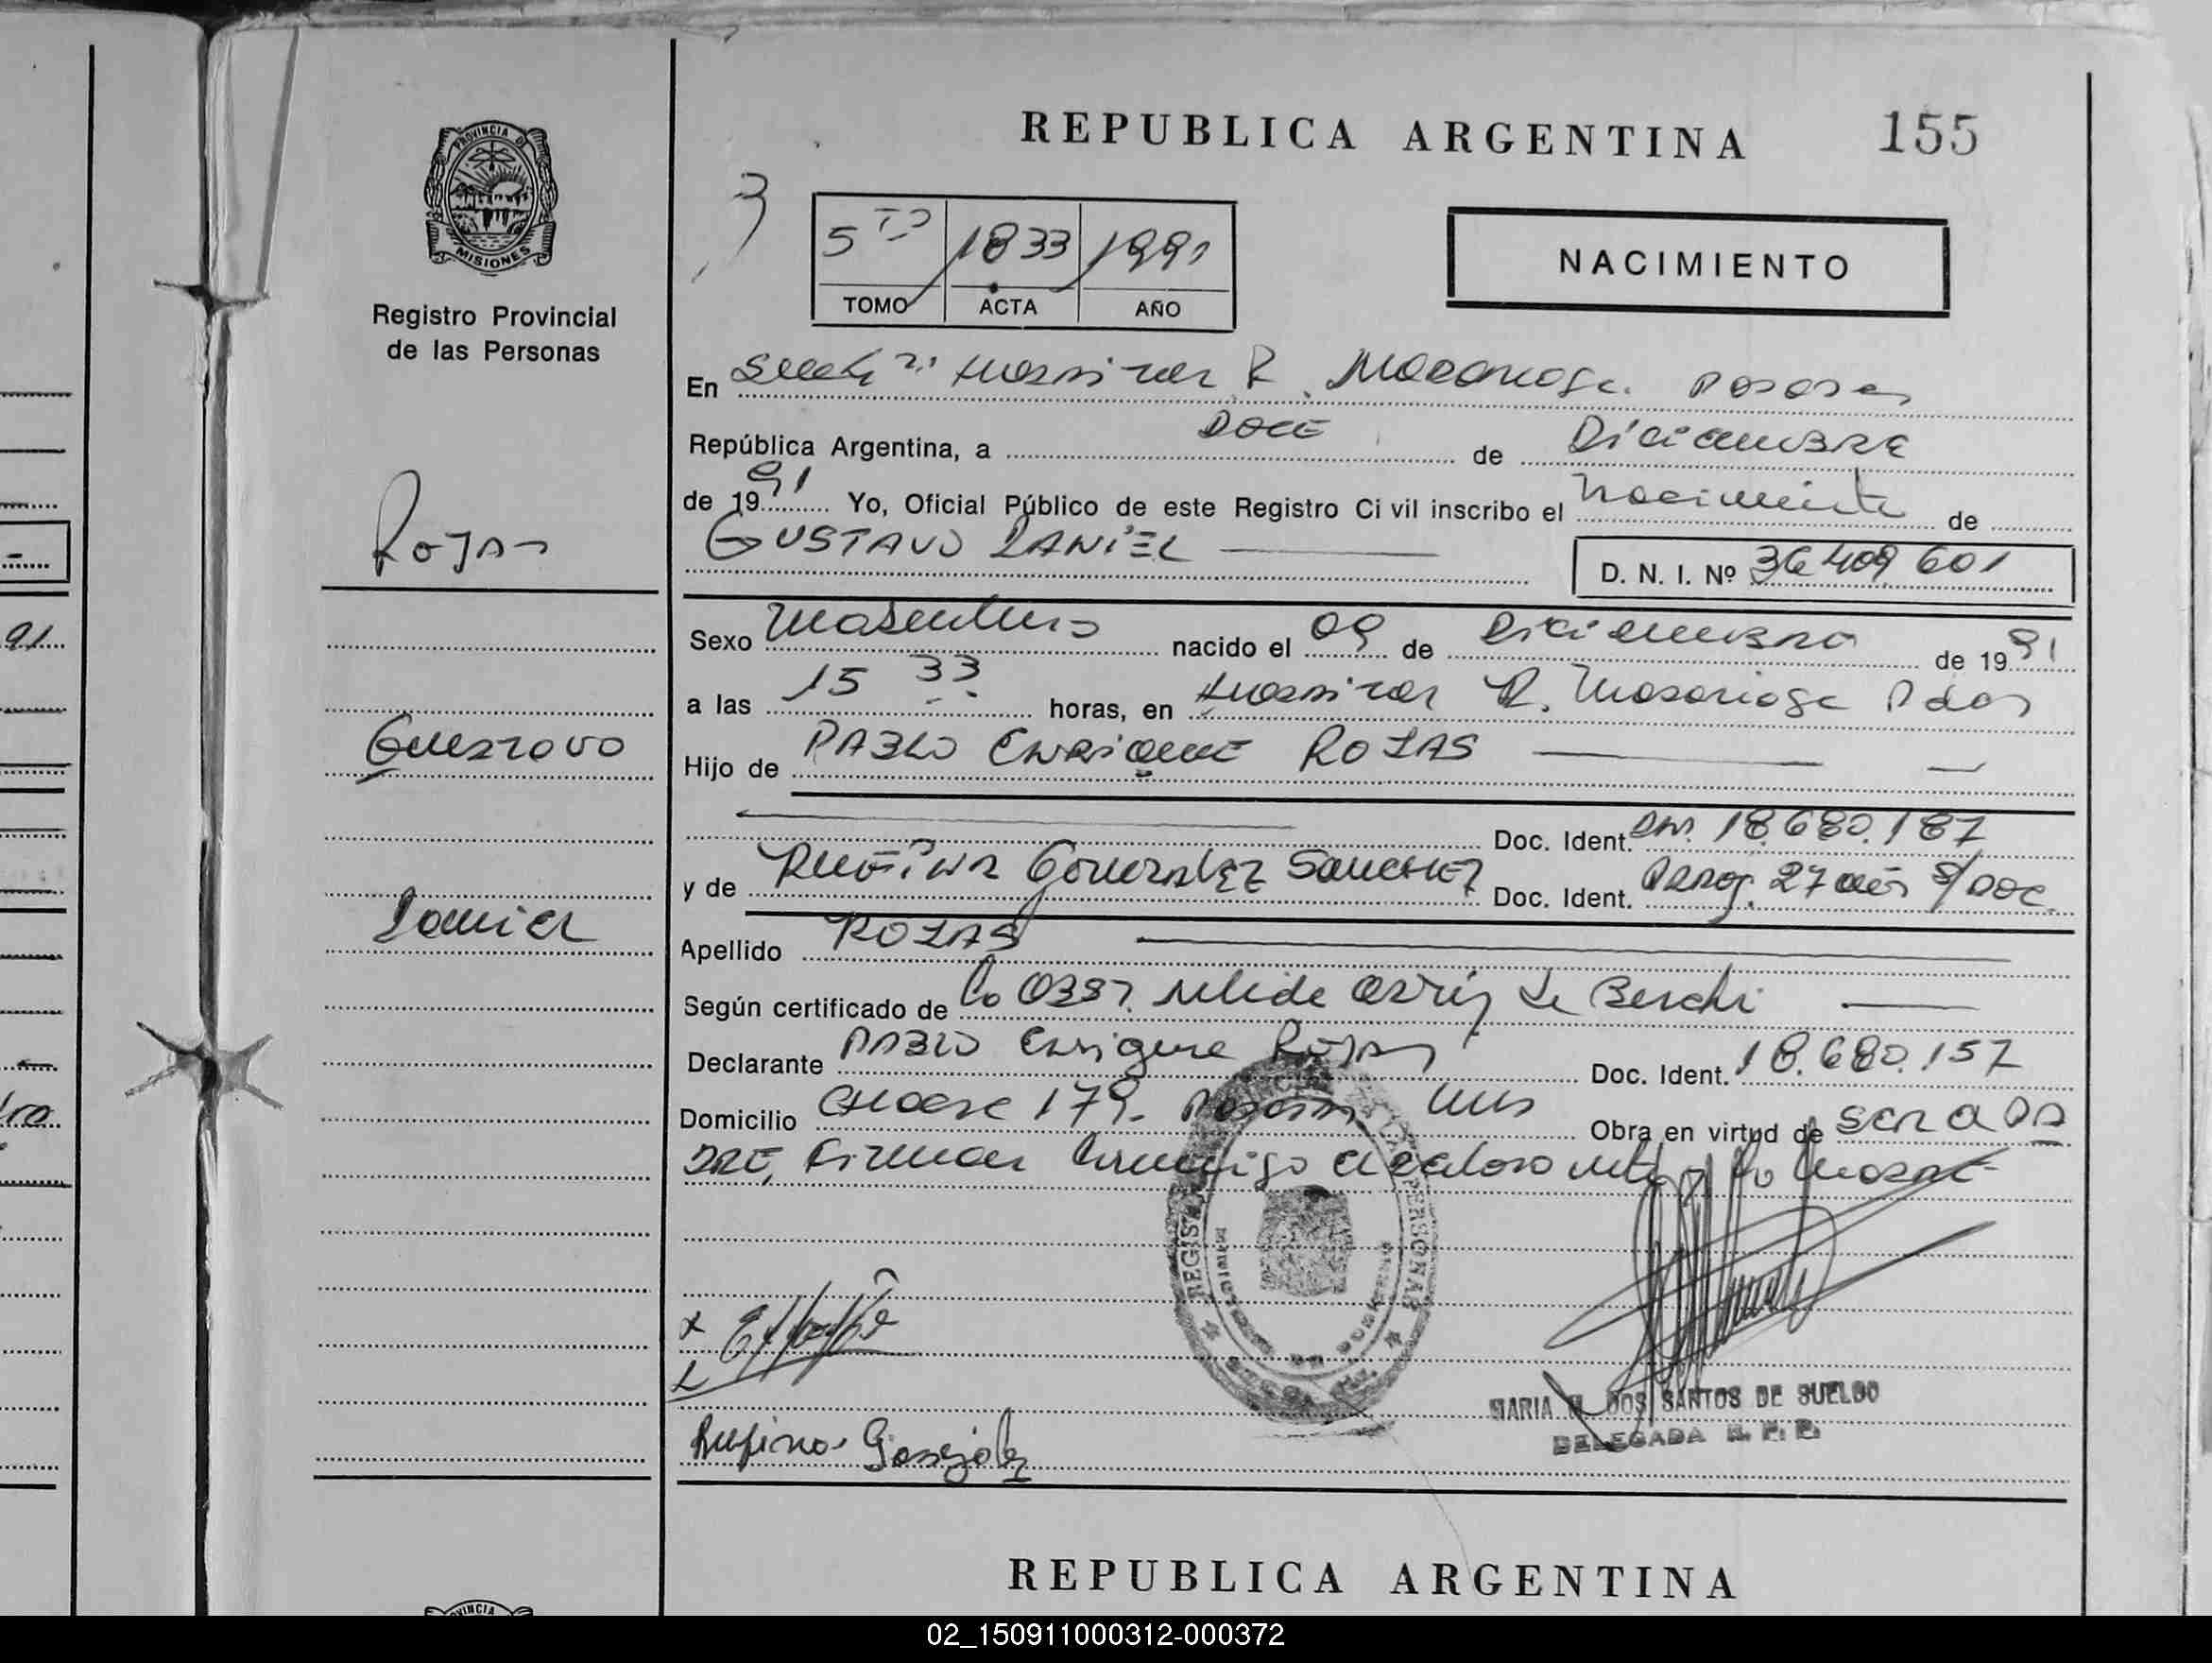 REPUBLICA ARGENTINA
155
PROVINCIA DE
MISIONES
Registro Provincial
de las Personas
3
5to 1833 1991
TOMO ACTA AÑO
NACIMIENTO
En R. Posadas
República Argentina, a DOCE de DiciembRE
de 1991 Yo, Oficial Público de este Registro Civil inscribo el nacimiento de
GUSTAVO DANIEL
D. N. I. Nº 36409601
Rojas
Sexo Masculino nacido el 09 de Diciembre de 1991
a las 15 33 horas, en R. Pdas
Gustavo
Hijo de PABLO ENRiQUE ROJAS
Doc. Ident. DNI. 18.680.187
y de RUFINA GONZALEZ SANCHEZ Doc. Ident. Parag. 27 años S/DOC.
Daniel
Apellido ROJAS
Según certificado de de Berchi
Declarante PABLO Enrique Rojas Doc. Ident. 18.680.157
Domicilio 179. Posadas Mns Obra en virtud de SER el PA
DRE, Firman conmigo el
REGISTRO PERSONAS
Rufina Gonzalez
MARIA DOS SANTOS DE SUELDO
DELEGADA R. P. P.
REPUBLICA ARGENTINA
VINCIA
91
02_150911000312-000372